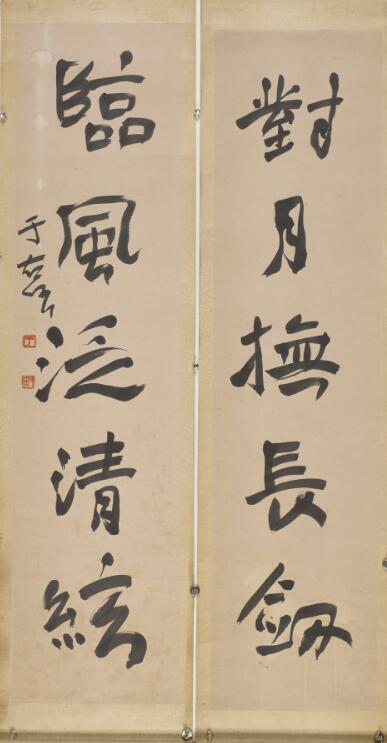 對月撫長劒
臨風泛清絃
于右任